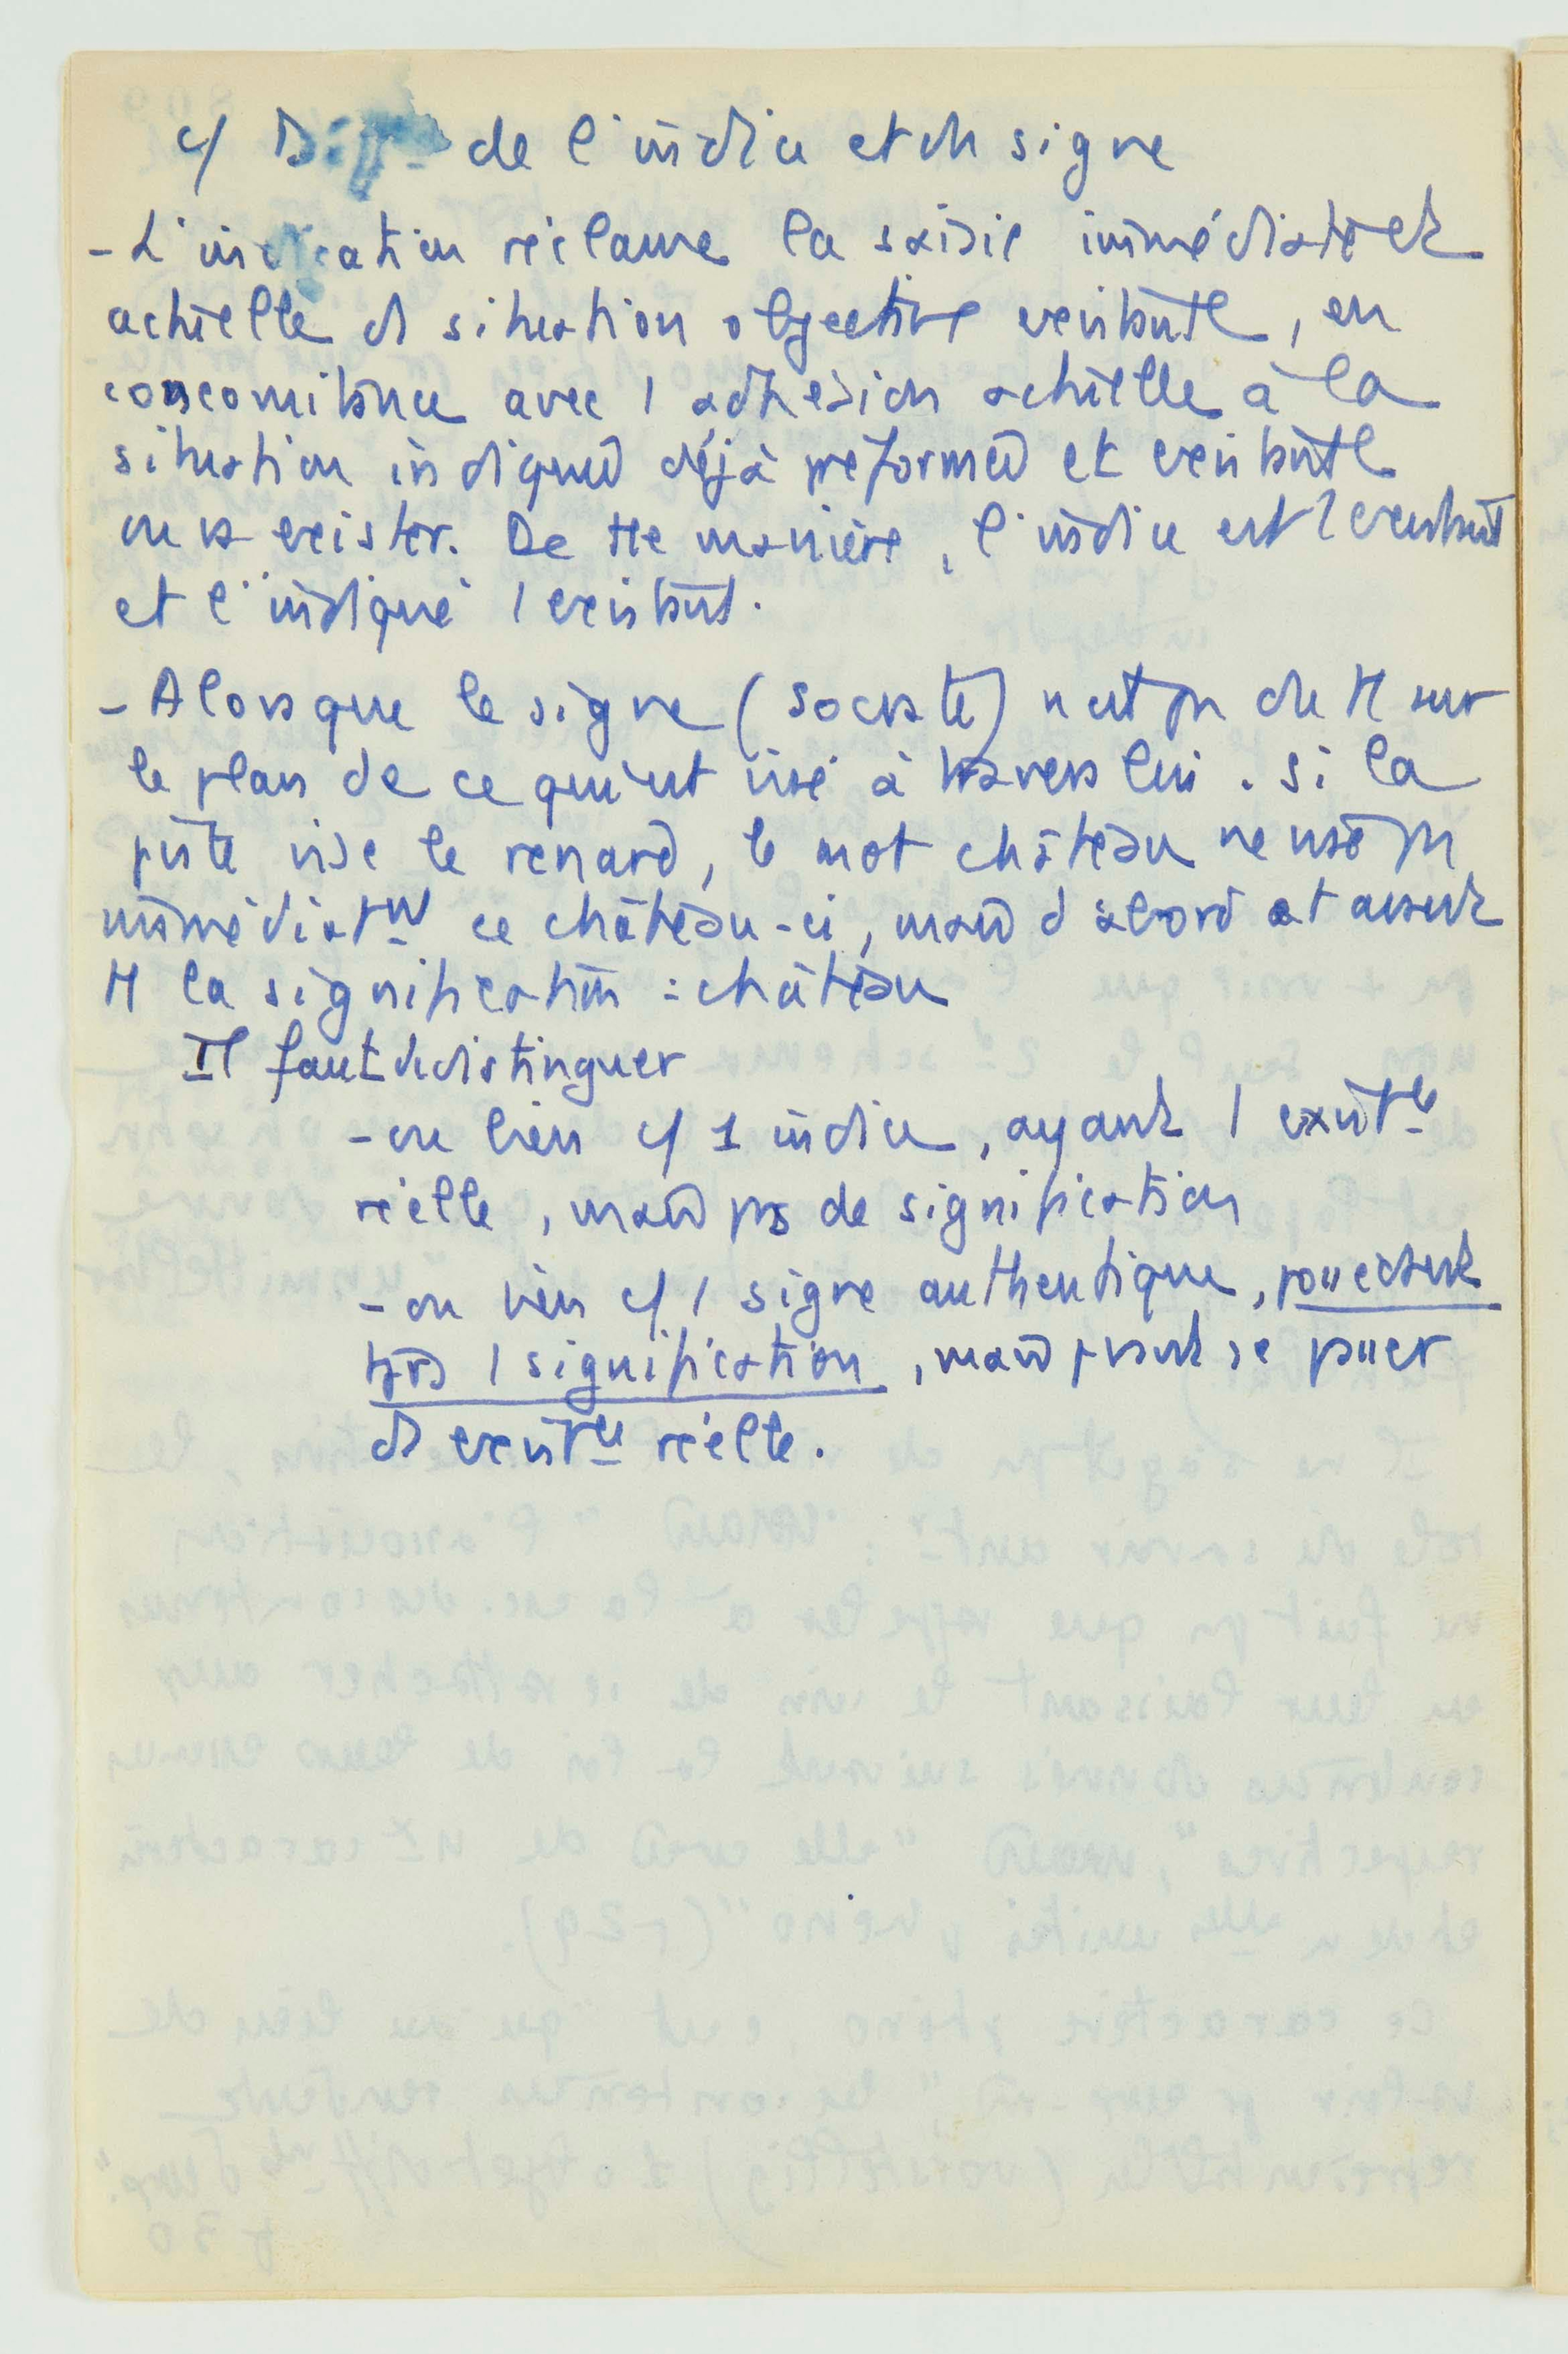 c/ Diff de l'indice et du signe
- L'indication réclame la saisie immédiate et
actuelle d situation objective existante, en
concomitance avec 1 adhésion actuelle à la
situation indiquée déjà préformée et existante
ou va exister. De tte manière, l'indice est 1 existant
et l'indiqué 1 existant.
- Alors que le signe ( ) n'est pas du tt sur
le plan de ce qui est visé à travers lui. Si la
piste vise le renard, le mot château ne vise pas
immédiatmt ce château-ci, mais d'abord et avant
tt la signification : château
Il faut distinguer
- ou bien c/ 1 indice, ayant 1 existce
réelle, mais pas de signification
- ou bien c/ 1 signe authentique, possédant
tjrs 1 signification, mais pouvant se passer
d existce réelle.